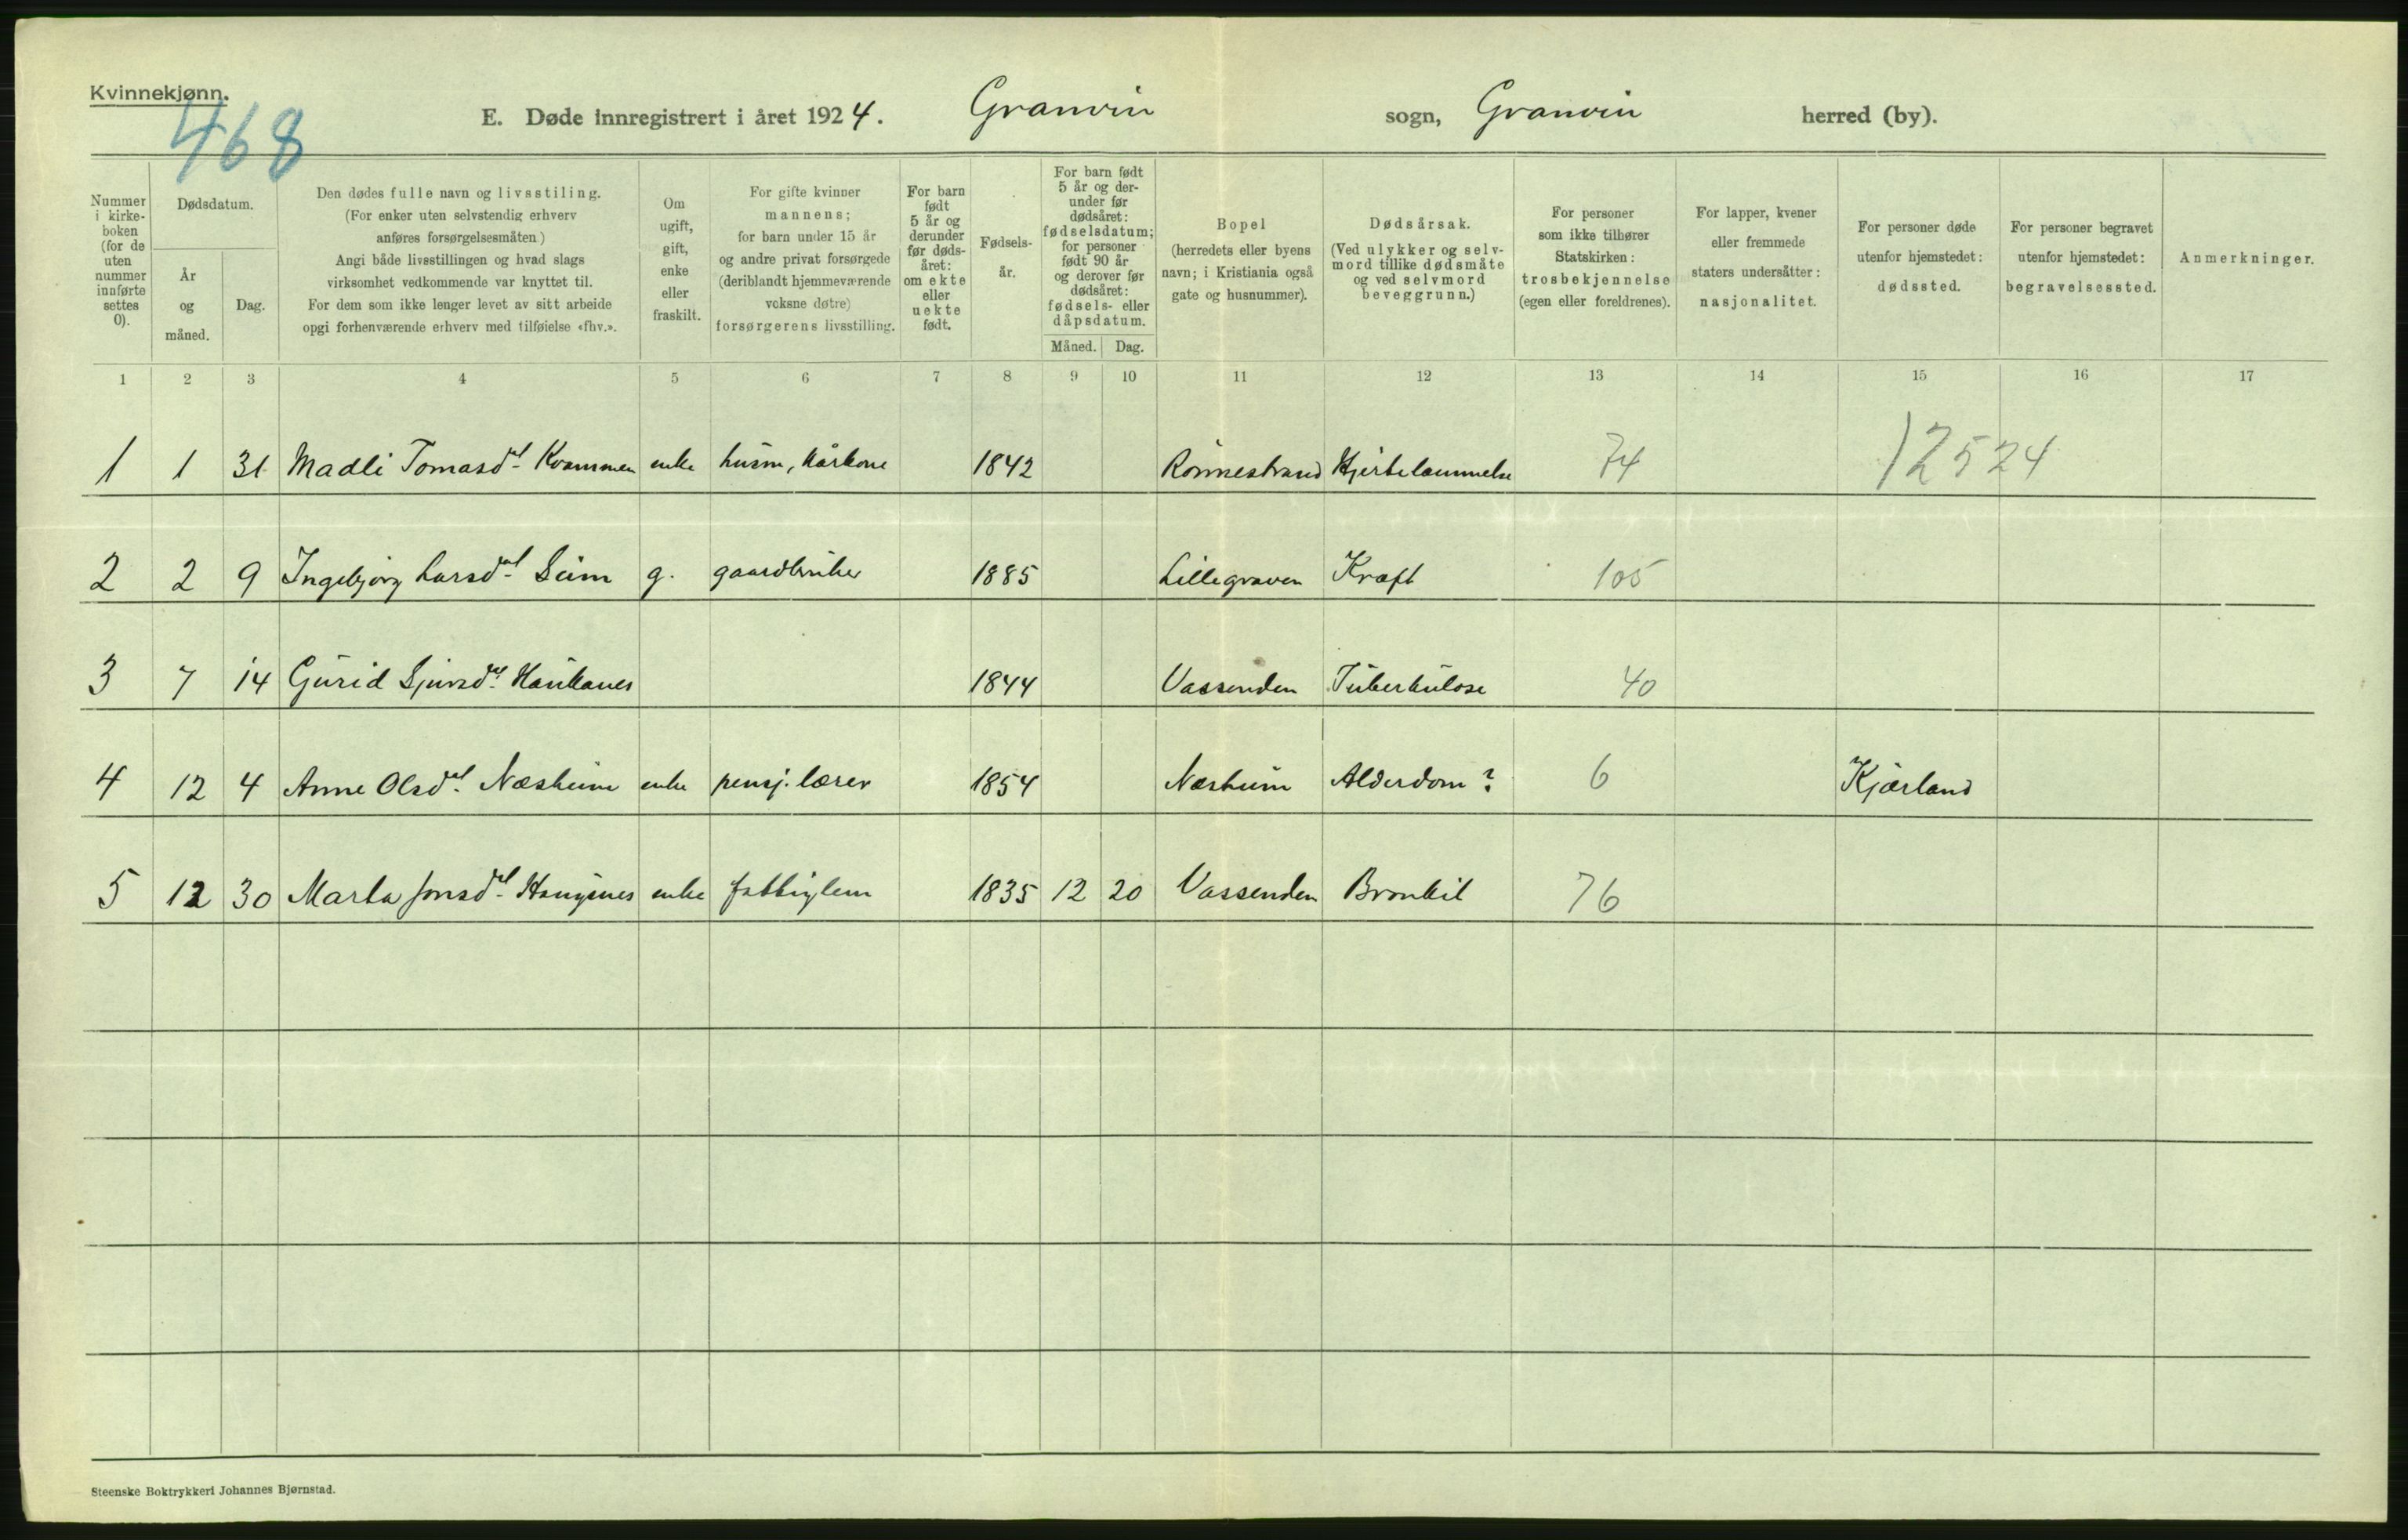 Kvinnekjønn.
468
E. Døde innregistrert i året 1924. Granvin sogn, Granvin herred (by).
Nummer i kirke- boken (for de uten nummer innførte settes 0).
Dødsdatum.
År og måned.
Dag.
Den dødes fulle navn og livsstiling.
(For enker uten selvstendig erhverv
anføres forsørgelsesmåten)
Angi både livsstillingen og hvad slags
virksomhet vedkommende var knyttet til.
For dem som ikke lenger levet av sitt arbeide
opgi forhenværende erhverv med tilføielse «fhv.».
Om ugift, gift, enke eller fraskilt.
For gifte kvinner
mannens;
for barn under 15 år
og andre privat forsørgede
(deriblandt hjemmeværende
voksne døtre)
forsørgerens livsstilling.
For barn født 5 år og derunder før døds- året: om ekte eller uekte født.
Fødsels- år.
For barn født
5 år og der-
under før
dødsåret:
fødselsdatum;
for personer
født 90 år
og derover før
dødsåret:
fødsels- eller
dåpsdatum.
Måned. Dag.
Bopel
(herredets eller byens
navn; i Kristiania også
gate og husnummer).
Dødsårsak.
(Ved ulykker og selv-
mord tillike dødsmåte
og ved selvmord
beveggrunn.)
For personer
som ikke tilhører
Statskirken:
trosbekjennelse
(egen eller foreldrenes).
For lapper, kvener
eller fremmede
staters undersåtter:
nasjonalitet.
For personer døde
utenfor hjemstedet:
dødssted.
For personer begravet
utenfor hjemstedet:
begravelsessted.
Anmerkninger.
1 2 3 4 5 6 7 8 9 10 11 12 13 14 15 16 17
1 1 31 Madli Tomasdtl Kvammen enke husm, kårkone 1842 Rönnestrand Hjertelammelse 74 12524
2 2 9 Ingebjörg Larsdtl Seim g. gaardbruker 1885 Lillegraven Kræft 105
3 7 14 Gurid Sjursdtl Haukanes 1844 Vassenden Tuberkulose 40
4 12 4 Anne Olsdtl Næsheim enke pensj. lærer 1854 Næsheim Alderdom? 6 Kjærland
5 12 30 Marta Jonsdtl enke fattiglem 1835 12 20 Vassenden Bronkit 76
Steenske Boktrykkeri Johannes Bjørnstad.